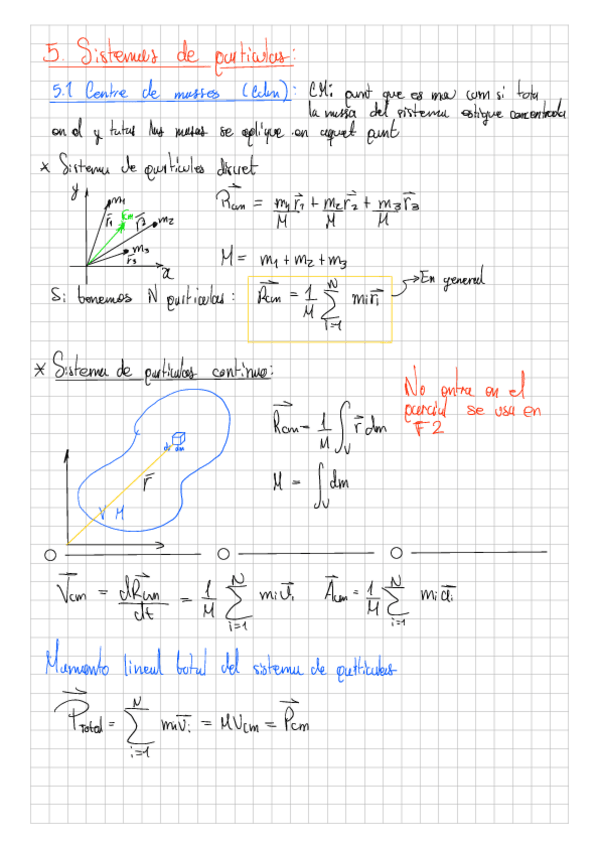 5. Sistemas de particulas:
5.1 Centre de masses (CdM): CM: punt que es mou com si tota
la massa del sistema estigue concentrada
en el y totes les masses se aplique en aquet punt
* Sistema de particules discret
y
m1
r1
cm
r2
m2
m3
r3
x
Rcm = m1r1/M + m2r2/M + m3r3/M
M = m1 + m2 + m3
Si tenemos N particulas: Rcm = 1/M Σ(i=1, N) miri → En general
* Sistema de particulas continuo:
No entra en el
parcial se usa en
F2
dV dm
r
V M
Rcm = 1/M ∫V r dm
M = ∫V dm
Vcm = dRcm/dt = 1/M Σ(i=1, N) mivi Acm = 1/M Σ(i=1, N) miai
Momento lineal total del sistema de particulas
PTotal = Σ(i=1, N) mivi = MVcm = Pcm